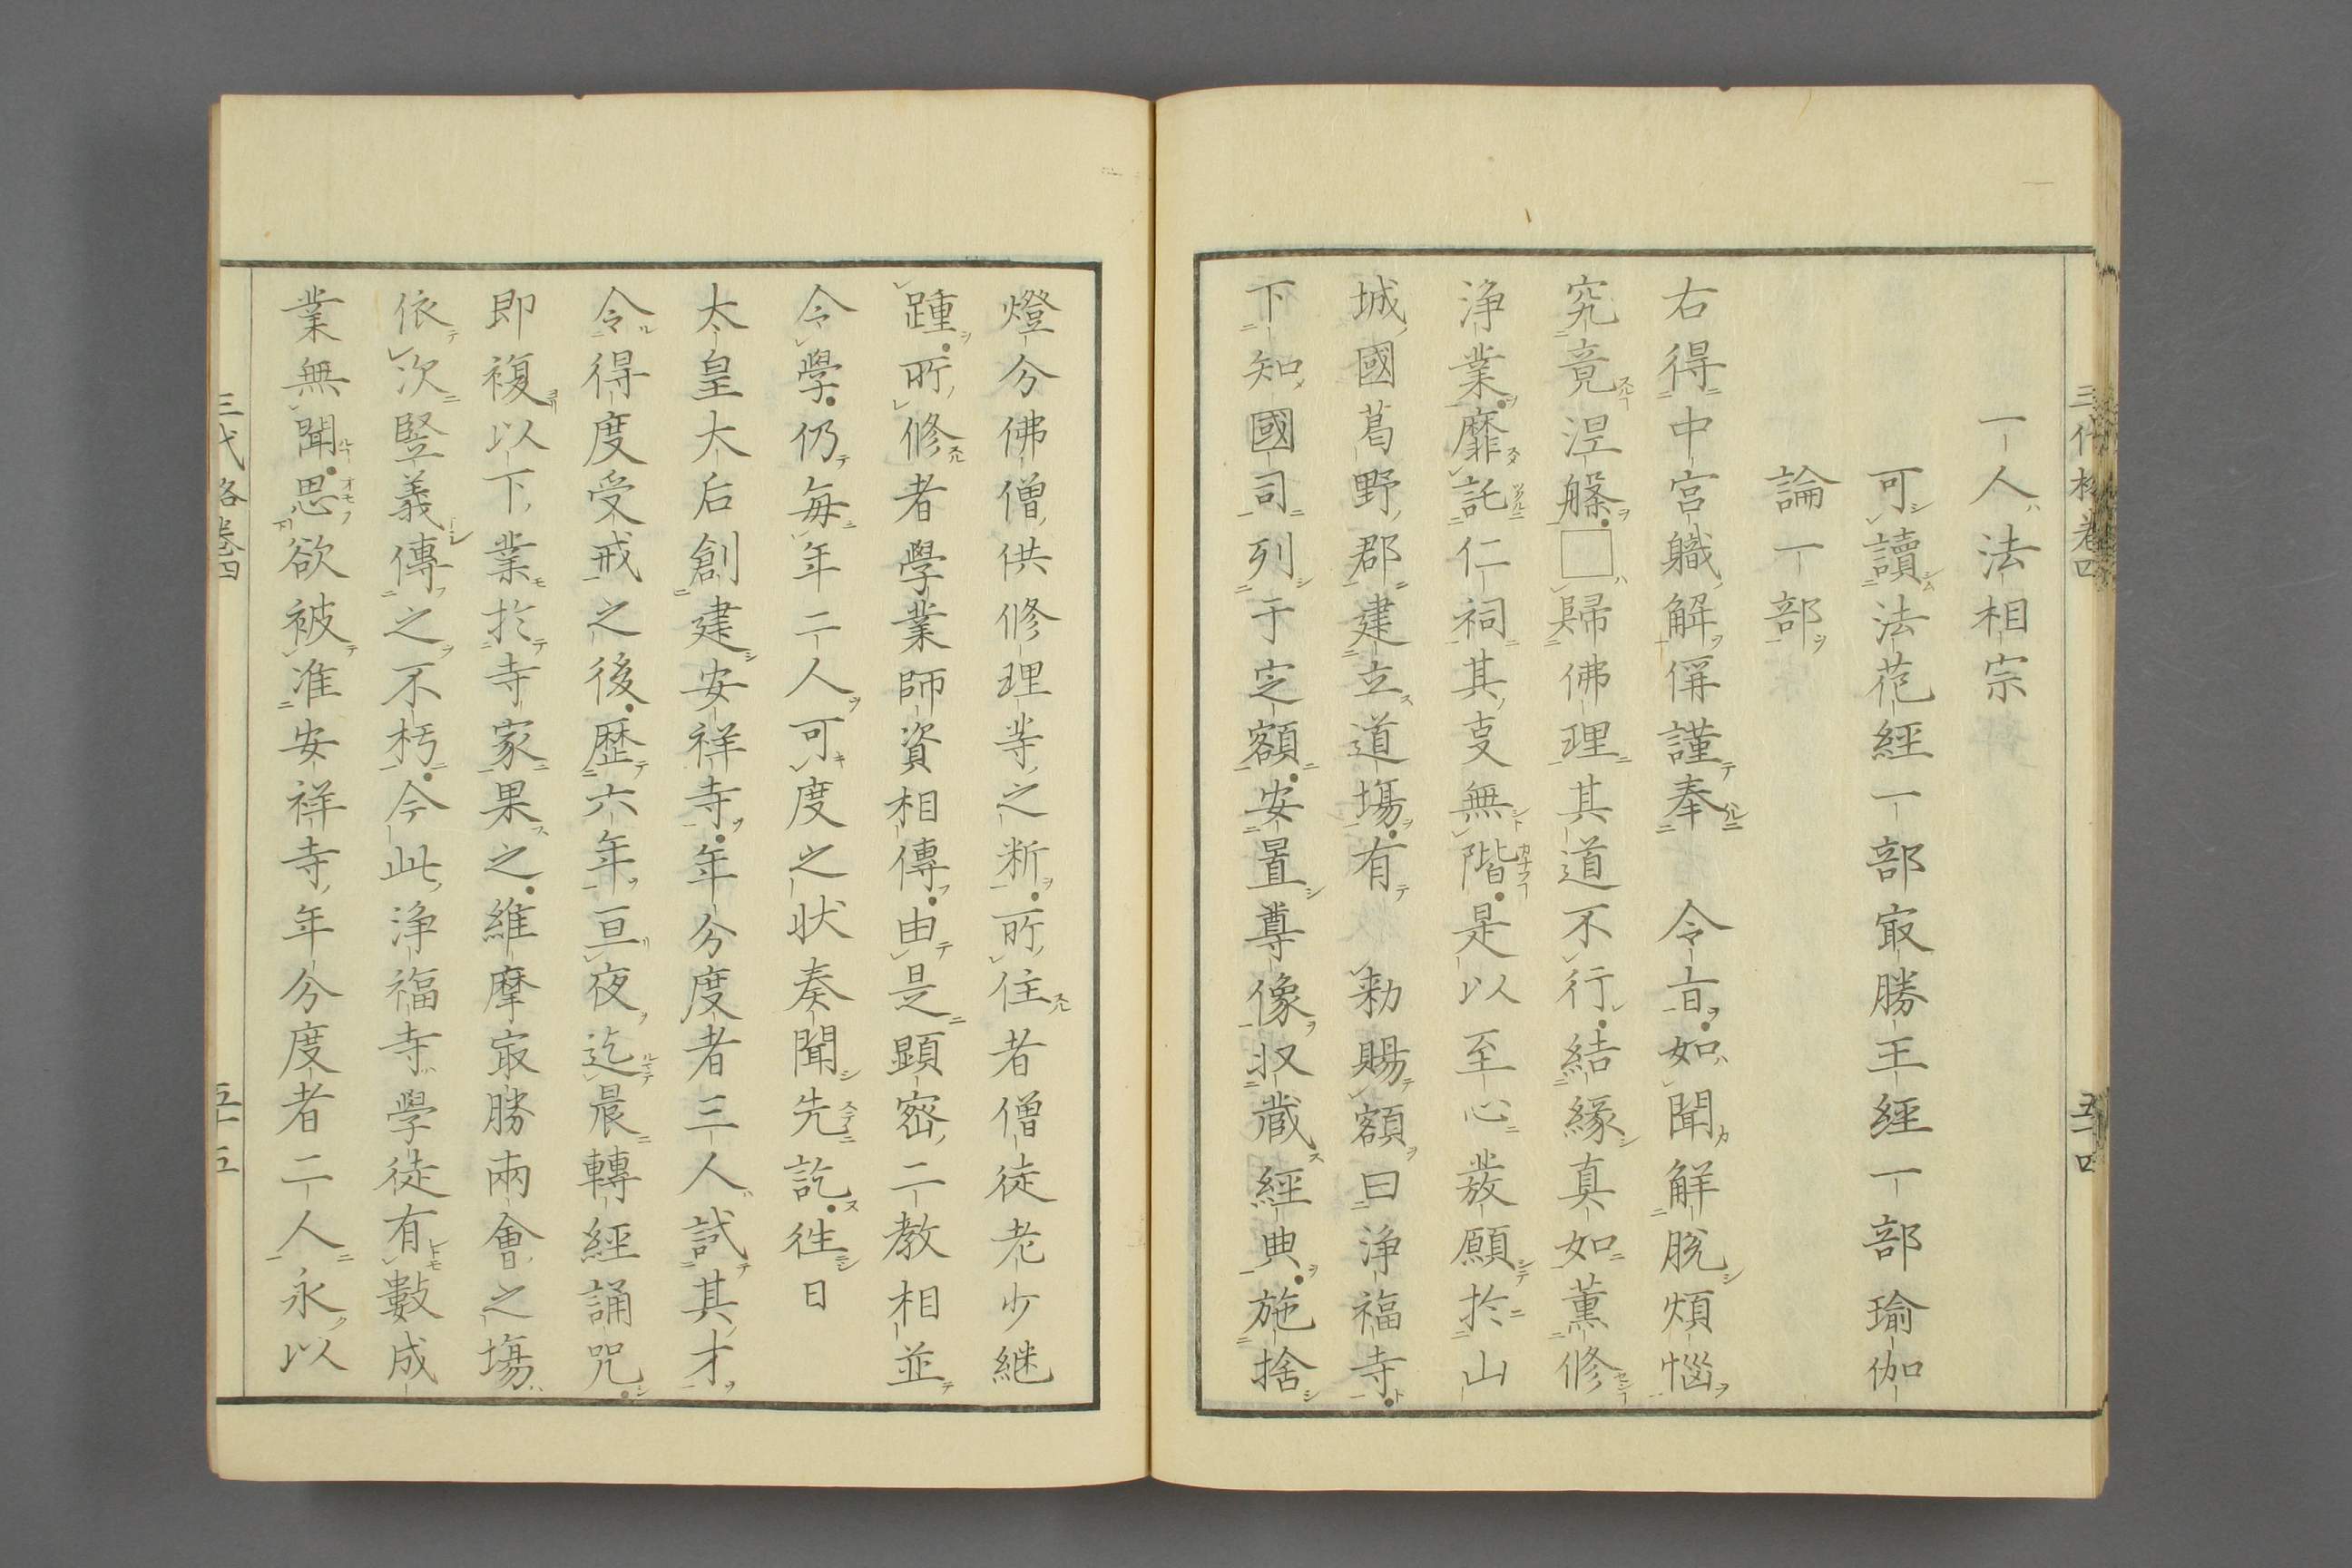 一人法相宗
可讀法花經一部㝡勝王經一部瑜伽
論一部
右得中宮職解偁謹奉　令旨如聞解脱煩惱
究竟涅槃□歸佛理其道不行結緣真如薫修
浄業靡託仁祠其叓無階是以至心發願於山
城國葛野郡建立道塲有　勅賜額曰浄福寺
下知國司列于定額安置尊像収藏經典施捨
燈分佛僧供修理䓁之断所住者僧徒老少継
踵所修者學業師資相傳由是顕密二教相並
令學仍毎年二人可度之状奏聞先訖徃日
太皇太后創建安祥寺年分度者三人試其才
令得度受戒之後歴六年亘夜迄晨轉經誦咒
即複以下業於寺家果之維摩㝡勝兩會之塲
依次竪義傳之不朽今此浄福寺學徒有數成
業無聞思欲被准安祥寺年分度者二人永以
三代格卷四
五十五